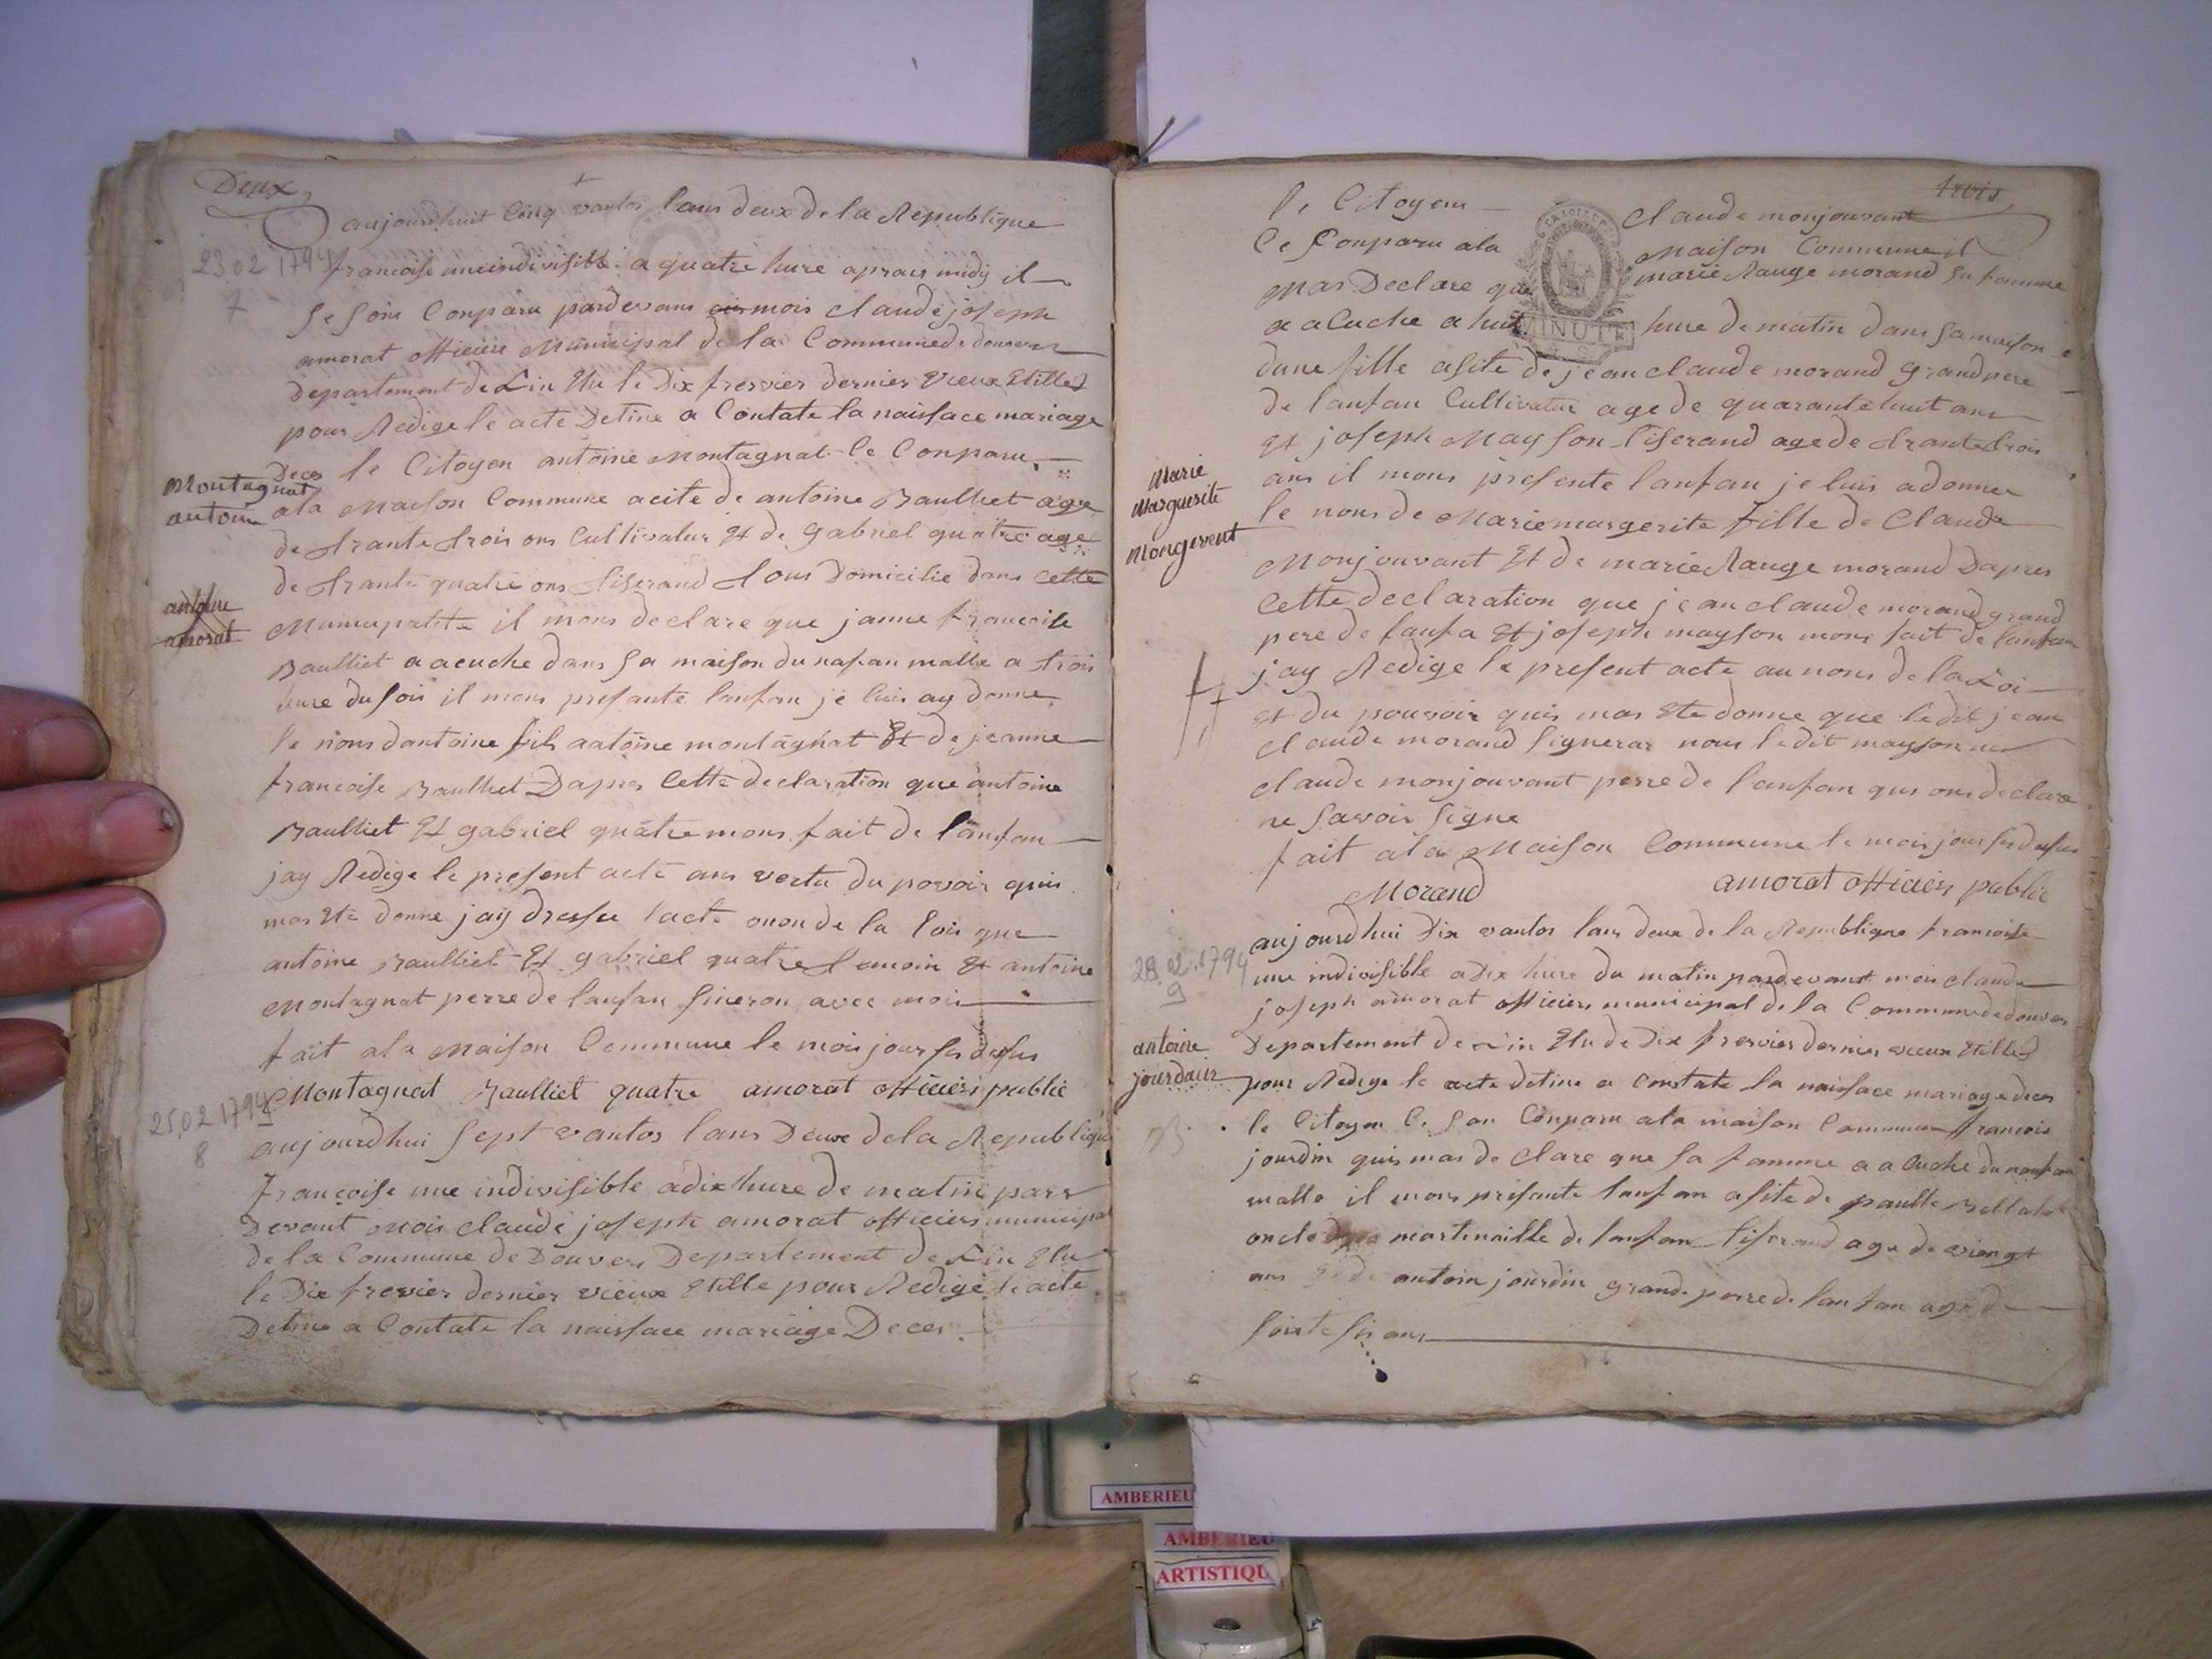 Deux
aujourdhuit Cinq vantos lans deux de la Republique
23 02 1794
7
francoise une indivisible a quatre hure apraes midy il
se soin Conparu pardevans mois claude joseph
amorat officiers Municipal de la Commune de douvres
Departement de Lin Elu le Dix frevier dernier vieux Stille
pour Redige le acte Detine a Contate la naisface mariage
Deces le Citoyen antoine Montagnat Ce Conparu
Montagnat
antoine
ala Maison Commune acite de antoine Baulliet age
de trante trois ans Cultivatur Et de gabriel quatre age
de trante quatre ans tiserand tous Domicilie dans Cette
antoine
amorat
Municipalite il mons declare que janne francoise
Baulliet a acuche dans sa maison du nafan malle a trois
hure du soir il mons presante lanfan je luis ay donne
le nons dantoine fils antoine montagnat Et de jeanne
francoise Baulliet Dapres Cette declaration que antoine
Baulliet Et gabriel quatre mons fait de lanfan
jay Redige le present acte ans vertu du povoir quis
mas Ete donne jay dresse lacte onon de la Lois que
antoine Baulliet Et gabriel quatre temoin Et antoine
Montagnat perre de lanfan sineron avec mois
fait ala Maison Commune le mois jour sus desus
Montagnat Baulliet quatre amorat officiers public
25.02 1794
8
aujourdhui sept vantos lans Deux dela Republique
francoise une indivisible a dix hure de matin parr
Devant mois claude joseph amorat officiers municipal
de la Commune de Douvers Departement de Lin Elu
le Dix frevier dernier vieux Stille pour Redige le acte
Detine a Contate la naisface mariage Deces
trois
le Citoyen claude monjouvant
Ce Conparu ala Maison Commune il
mas Declare que marie Rauge morand sa famme
a acuche a huit hure de matin dans sa maison
MINUTE
dune fille asite de jean claude morand grand pere
de lanfan Cultivatur age de quarante huit ans
Et joseph Mayson tiserand age de trante trois
ans il mons presente lanfan je luis a donner
Marie
Marguerite
Mongevent
le nons de Marie margerite fille de Claude
Monjouvant Et de marie Rauge morand Dapres
Cette declaration que jean claude morand grand
pere de lanfa Et joseph mayson mons fait de lanfan
jay Redige le present acte au nons de la Loi
Et du pouvoir quis mas Ete donne que ledit jean
claude morand signeras nons ledit mayson ne
claude monjouvant perre de lanfan qus ons declare
ne savoir signe
fait ala Maison Commune le mois jour sus desus
Morand amorat officiers public
aujourdhui Dix vantos lans deux de la Republique francoise
28.02.1794
9
une indivisible a Dix hure du matin pardevant mois claude
joseph amorat officiers municipal de la Commune de douvers
antoine
jourdain
Departement de Lin Elu de Dix frevier dernier vieux Stille
pour Redige le acte detine a constate la naisface mariage deces
le Citoyen Ce son Conparu ala maison Commune francois
jourdin quis mas declare que sa famme a acuche du nanfan
malle il mons presante lanfan asite de paulle
oncle martenaille de lanfan tiserand age de viengt
ans antoin jourdin grande perre de lanfan age de
soixte sis ans
AMBERIEU
AMBERIEU
ARTISTIQU